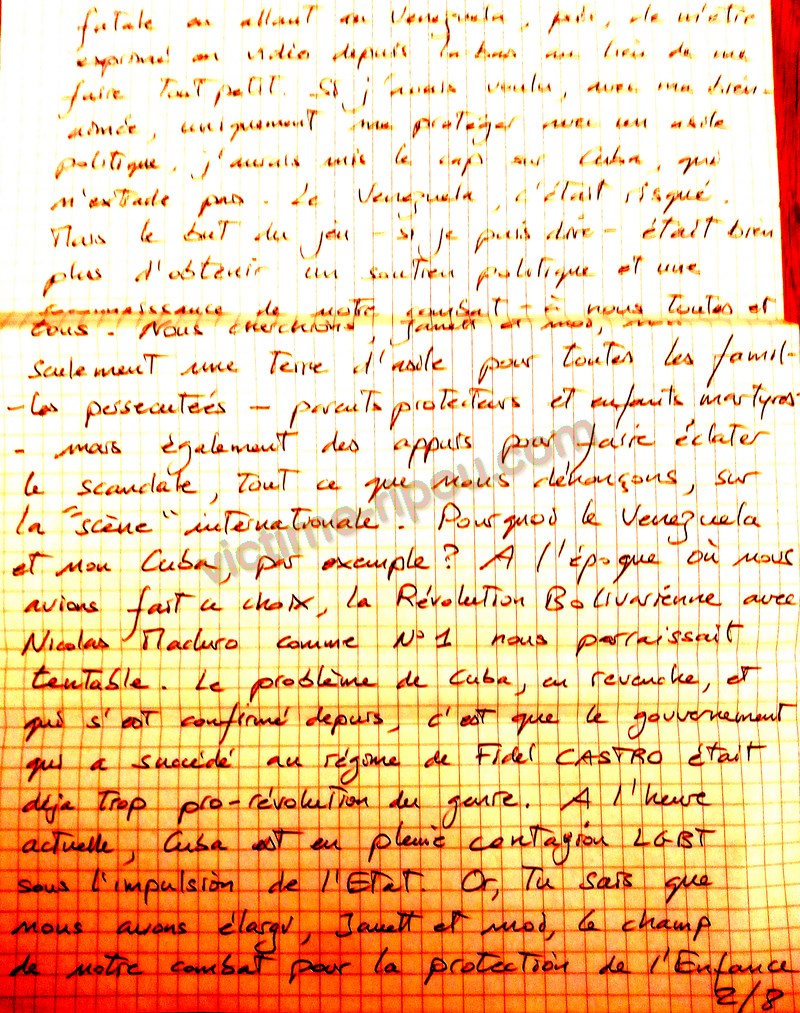 fatale en allant au Venezuela, puis, de m'être
exprimé en vidéo depuis là-bas au lieu de me
faire tout petit. Si j'avais voulu, avec ma bien-
aimée, uniquement me protéger avec un asile
politique, j'aurais mis le cap sur Cuba, qui
n'extrade pas. Le Venezuela, c'était risqué.
Mais le but du jeu - si je puis dire - était bien
plus d'obtenir un soutien politique et une
connaissance de notre combat - à nous toutes et
tous. Nous cherchions, Janett et moi, non
seulement une terre d'asile pour toutes les famil-
-les persecutées - parents protecteurs et enfants martyres-
- mais également des appuis pour faire éclater
le scandale, tout ce que nous dénonçons, sur
la "scène" internationale. Pourquoi le Venezuela
et non Cuba, par exemple? A l'époque où nous
avions fait ce choix, la Révolution Bolivarienne avec
Nicolas Maduro comme N°1 nous parraissait
tentable. Le problème de Cuba, en revanche, et
qui s'est confirmé depuis, c'est que le gouvernement
qui a succédé au régime de Fidel CASTRO était
déja trop pro-révolution du genre. A l'heure
actuelle, Cuba est en pleine contagion LGBT
sous l'impulsion de l'Etat. Or, Tu sais que
nous avons élargi, Janett et moi, le champ
de notre combat pour la protection de l'Enfance
2/8
victime-ripou.com